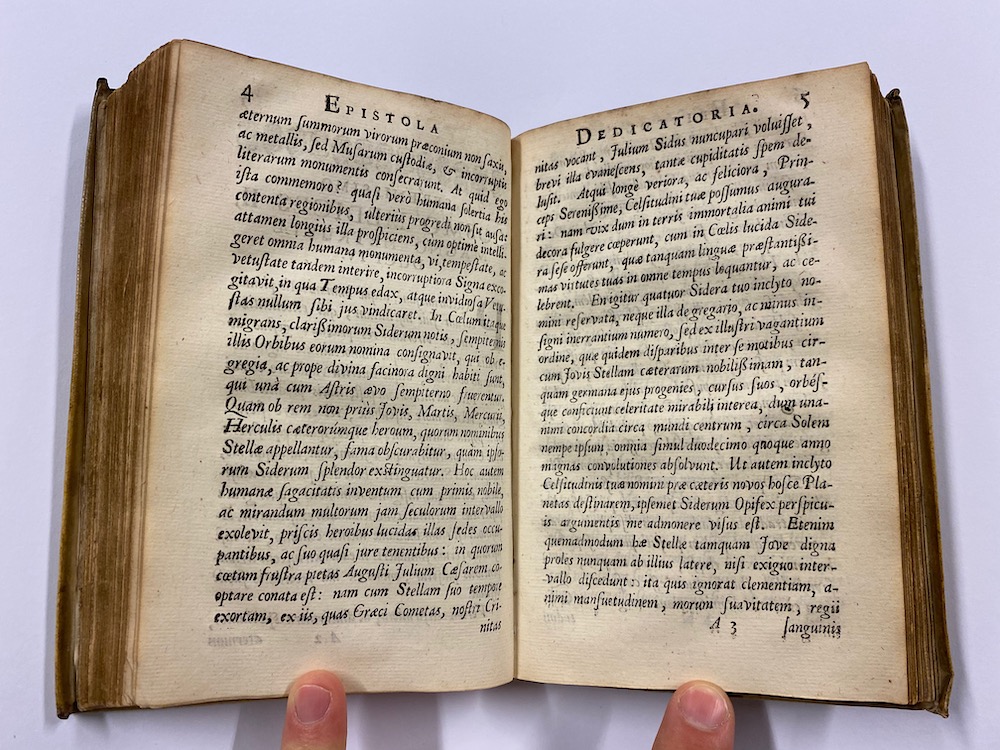 4 EPISTOLA
æternum ſummorum virorum præconium non ſaxis,
ac metallis, ſed Muſarum cuſtodiæ, & incorruptis
literarum monumentis conſecrarunt. At quid ego
iſta commemoro? quaſi verò humana ſolertia his
contenta regionibus, ulteriùs progredi non ſit auſa:
attamen longius illa proſpiciens, cùm optimè intelli-
geret omnia humana monumenta, vi, tempeſtate, ac
vetuſtate tandem interire, incorruptiora Signa exco-
gitavit, in qua Tempus edax, atque invidioſa Vetu-
ſtas nullum ſibi jus vindicaret. In Cœlum itaque
migrans, clariſſimorum Siderum notis, ſempiternis
illis Orbibus eorum nomina conſignavit, qui ob e-
gregia, ac prope divina facinora digni habiti ſunt,
qui unà cum Aſtris ævo ſempiterno fruerentur.
Quam ob rem non priùs Jovis, Martis, Mercurii,
Herculis cæterorúmque heroum, quorum nominibus
Stellæ appellantur, fama obſcurabitur, quàm ipſo-
rum Siderum ſplendor exſtinguatur. Hoc autem
humanæ ſagacitatis inventum cum primis nobile,
ac mirandum multorum jam ſeculorum intervallo
exolevit, priſcis heroibus lucidas illas ſedes occu-
pantibus, ac ſuo quaſi jure tenentibus: in quorum
cœtum fruſtra pietas Auguſti Julium Cæſarem co-
optare conata eſt: nam cum Stellam ſuo tempore
exortam, ex iis, quas Græci Cometas, noſtri Cri-
nitas
DEDICATORIA. 5
nitas vocant, Julium Sidus nuncupari voluiſſet,
brevi illa evaneſcens, tantæ cupiditatis ſpem de-
luſit. Atqui longè veriora, ac feliciora, Prin-
ceps Sereniſſime, Celſitudini tuæ poſſumus augura-
ri: nam vix dum in terris immortalia animi tui
decora fulgere cœperunt, cum in Cœlis lucida Side-
ra ſeſe offerunt, quæ tanquam linguæ præſtantiſſi-
mas virtutes tuas in omne tempus loquantur, ac ce-
lebrent. En igitur quatuor Sidera tuo inclyto no-
mini reſervata, neque illa de gregario, ac minus in-
ſigni inerrantium numero, ſed ex illuſtri vagantium
ordine, quæ quidem diſparibus inter ſe motibus cir-
cum Jovis Stellam cæterarum nobiliſſimam, tan-
quam germana ejus progenies, curſus ſuos, orbéſ-
que conficiunt celeritate mirabili interea, dum una-
nimi concordia circa mundi centrum, circa Solem
nempe ipſum, omnia ſimul duodecimo quoque anno
magnas convolutiones abſolvunt. Ut autem inclyto
Celſitudinis tuæ nomini præ cæteris novos hoſce Pla-
netas deſtinarem, ipſemet Siderum Opifex perſpicu-
is argumentis me admonere viſus eſt. Etenim
quemadmodum hæ Stellæ tamquam Jove digna
proles nunquam ab illius latere, niſi exiguo inter-
vallo diſcedunt: ita quis ignorat clementiam, a-
nimi manſuetudinem, morum ſuavitatem, regii
A 3 ſanguinis